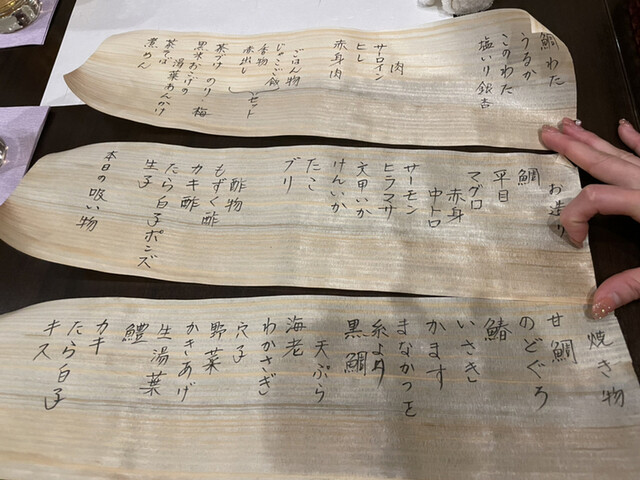 鯛わた
うるか
このわた
塩いり銀杏
肉
サーロイン
ヒレ
赤身肉
ごはん物
じゃこご飯
香物
赤出し
セット
茶づけ のり 梅
黒米おこげの
湯葉あんかけ
茶そば
煮めん
お造り
鯛
平目
マグロ
赤身
中トロ
サーモン
ヒラマサ
文甲いか
けんいか
たこ
ブリ
酢物
もずく酢
カキ酢
たら白子ポンズ
生子
本日の吸い物
焼き物
甘鯛
のどぐろ
鰆
いさき
かます
まなかつを
糸より
黒鯛
天ぷら
海老
わかさぎ
穴子
野菜
かきあげ
生湯葉
鱧
カキ
たら白子
キス